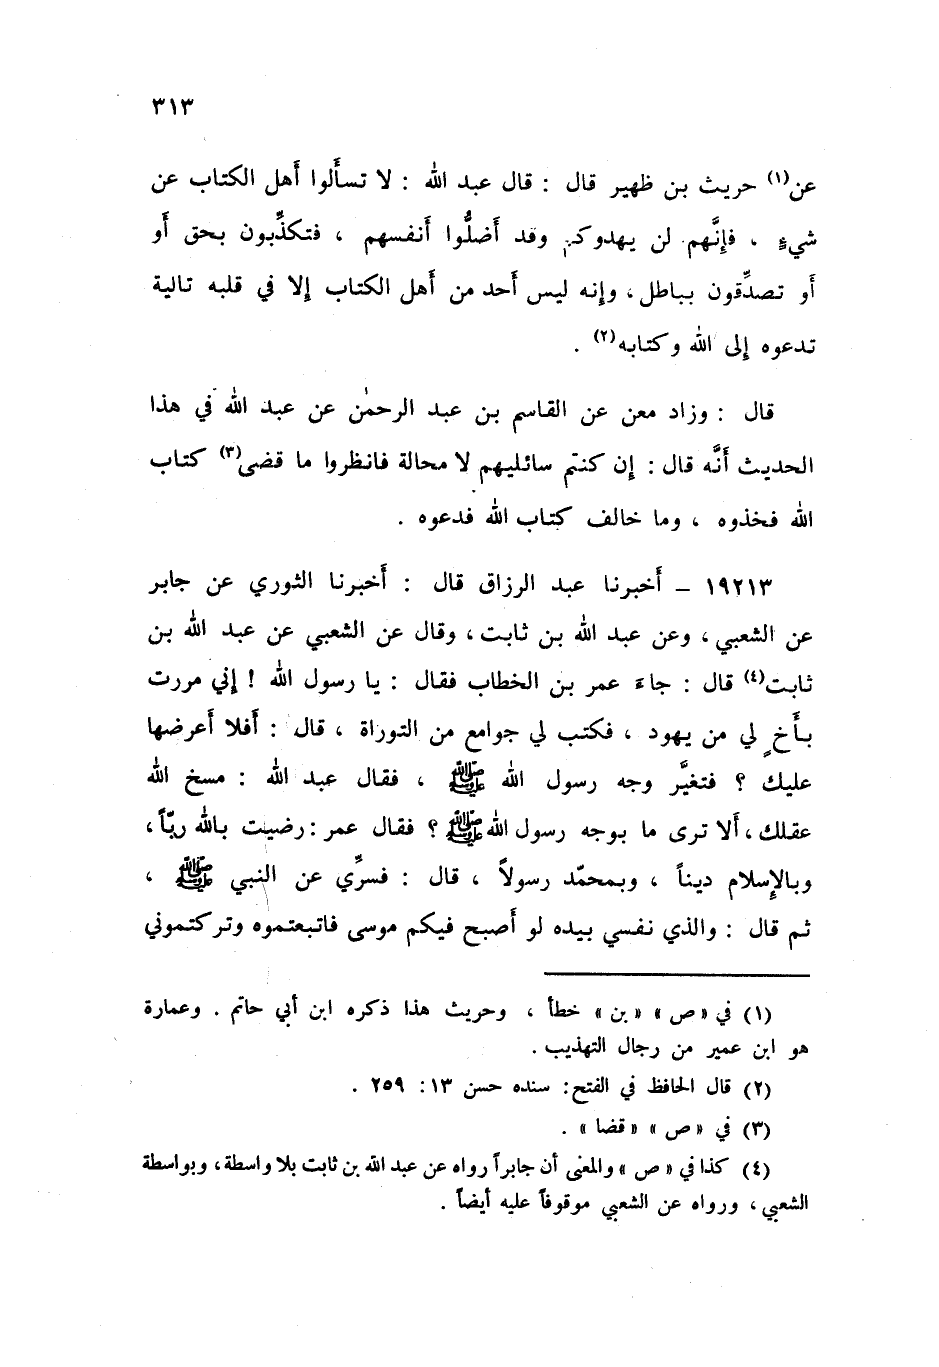 ٣١٣
عن(١) حريث بن ظهير قال : قال عبد الله : لا تسأَلوا أَهل الكتاب عن
شيءٍ ، فإِنَّهم لن يهدوكم وقد أَضلُّوا أَنفسهم ، فتكذِّبون بحق أَو
أَو تصدِّقون بباطل ، وإِنه ليس أَحد من أَهل الكتاب إِلا في قلبه تالية
تدعوه إِلى الله وكتابه(٢) .
قال : وزاد معن عن القاسم بن عبد الرحمٰن عن عبد الله في هذا
الحديث أَنَّه قال : إِن كنتم سائليهم لا محالة فانظروا ما قضى(٣) كتاب
الله فخذوه ، وما خالف كتاب الله فدعوه .
١٩٢١٣ – أَخبرنا عبد الرزاق قال : أَخبرنا الثوري عن جابر
عن الشعبي ، وعن عبد الله بن ثابت ، وقال عن الشعبي عن عبد الله بن
ثابت(٤) قال : جاءَ عمر بن الخطاب فقال : يا رسول الله ! إِني مررت
بأَخٍ لي من يهود ، فكتب لي جوامع من التوراة ، قال : أَفلا أَعرضها
عليك ؟ فتغيَّر وجه رسول الله ﷺ ، فقال عبد الله : مسخ الله
عقلك ، أَلا ترى ما بوجه رسول الله ﷺ ؟ فقال عمر : رضيت بالله ربّاً ،
وبالإِسلام ديناً ، وبمحمّد رسولاً ، قال : فسرِّي عن النبي ﷺ ،
ثم قال : والذي نفسي بيده لو أَصبح فيكم موسى فاتبعتموه وتركتموني
(١) في « ص » « بن » خطأ ، وحريث هذا ذكره ابن أبي حاتم . وعمارة
هو ابن عمير من رجال التهذيب .
(٢) قال الحافظ في الفتح : سنده حسن ١٣ : ٢٥٩ .
(٣) في « ص » « قضا » .
(٤) كذا في « ص » والمعنى أن جابراً رواه عن عبد الله بن ثابت بلا واسطة ، وبواسطة
الشعبي ، ورواه عن الشعبي موقوفاً عليه أيضاً .